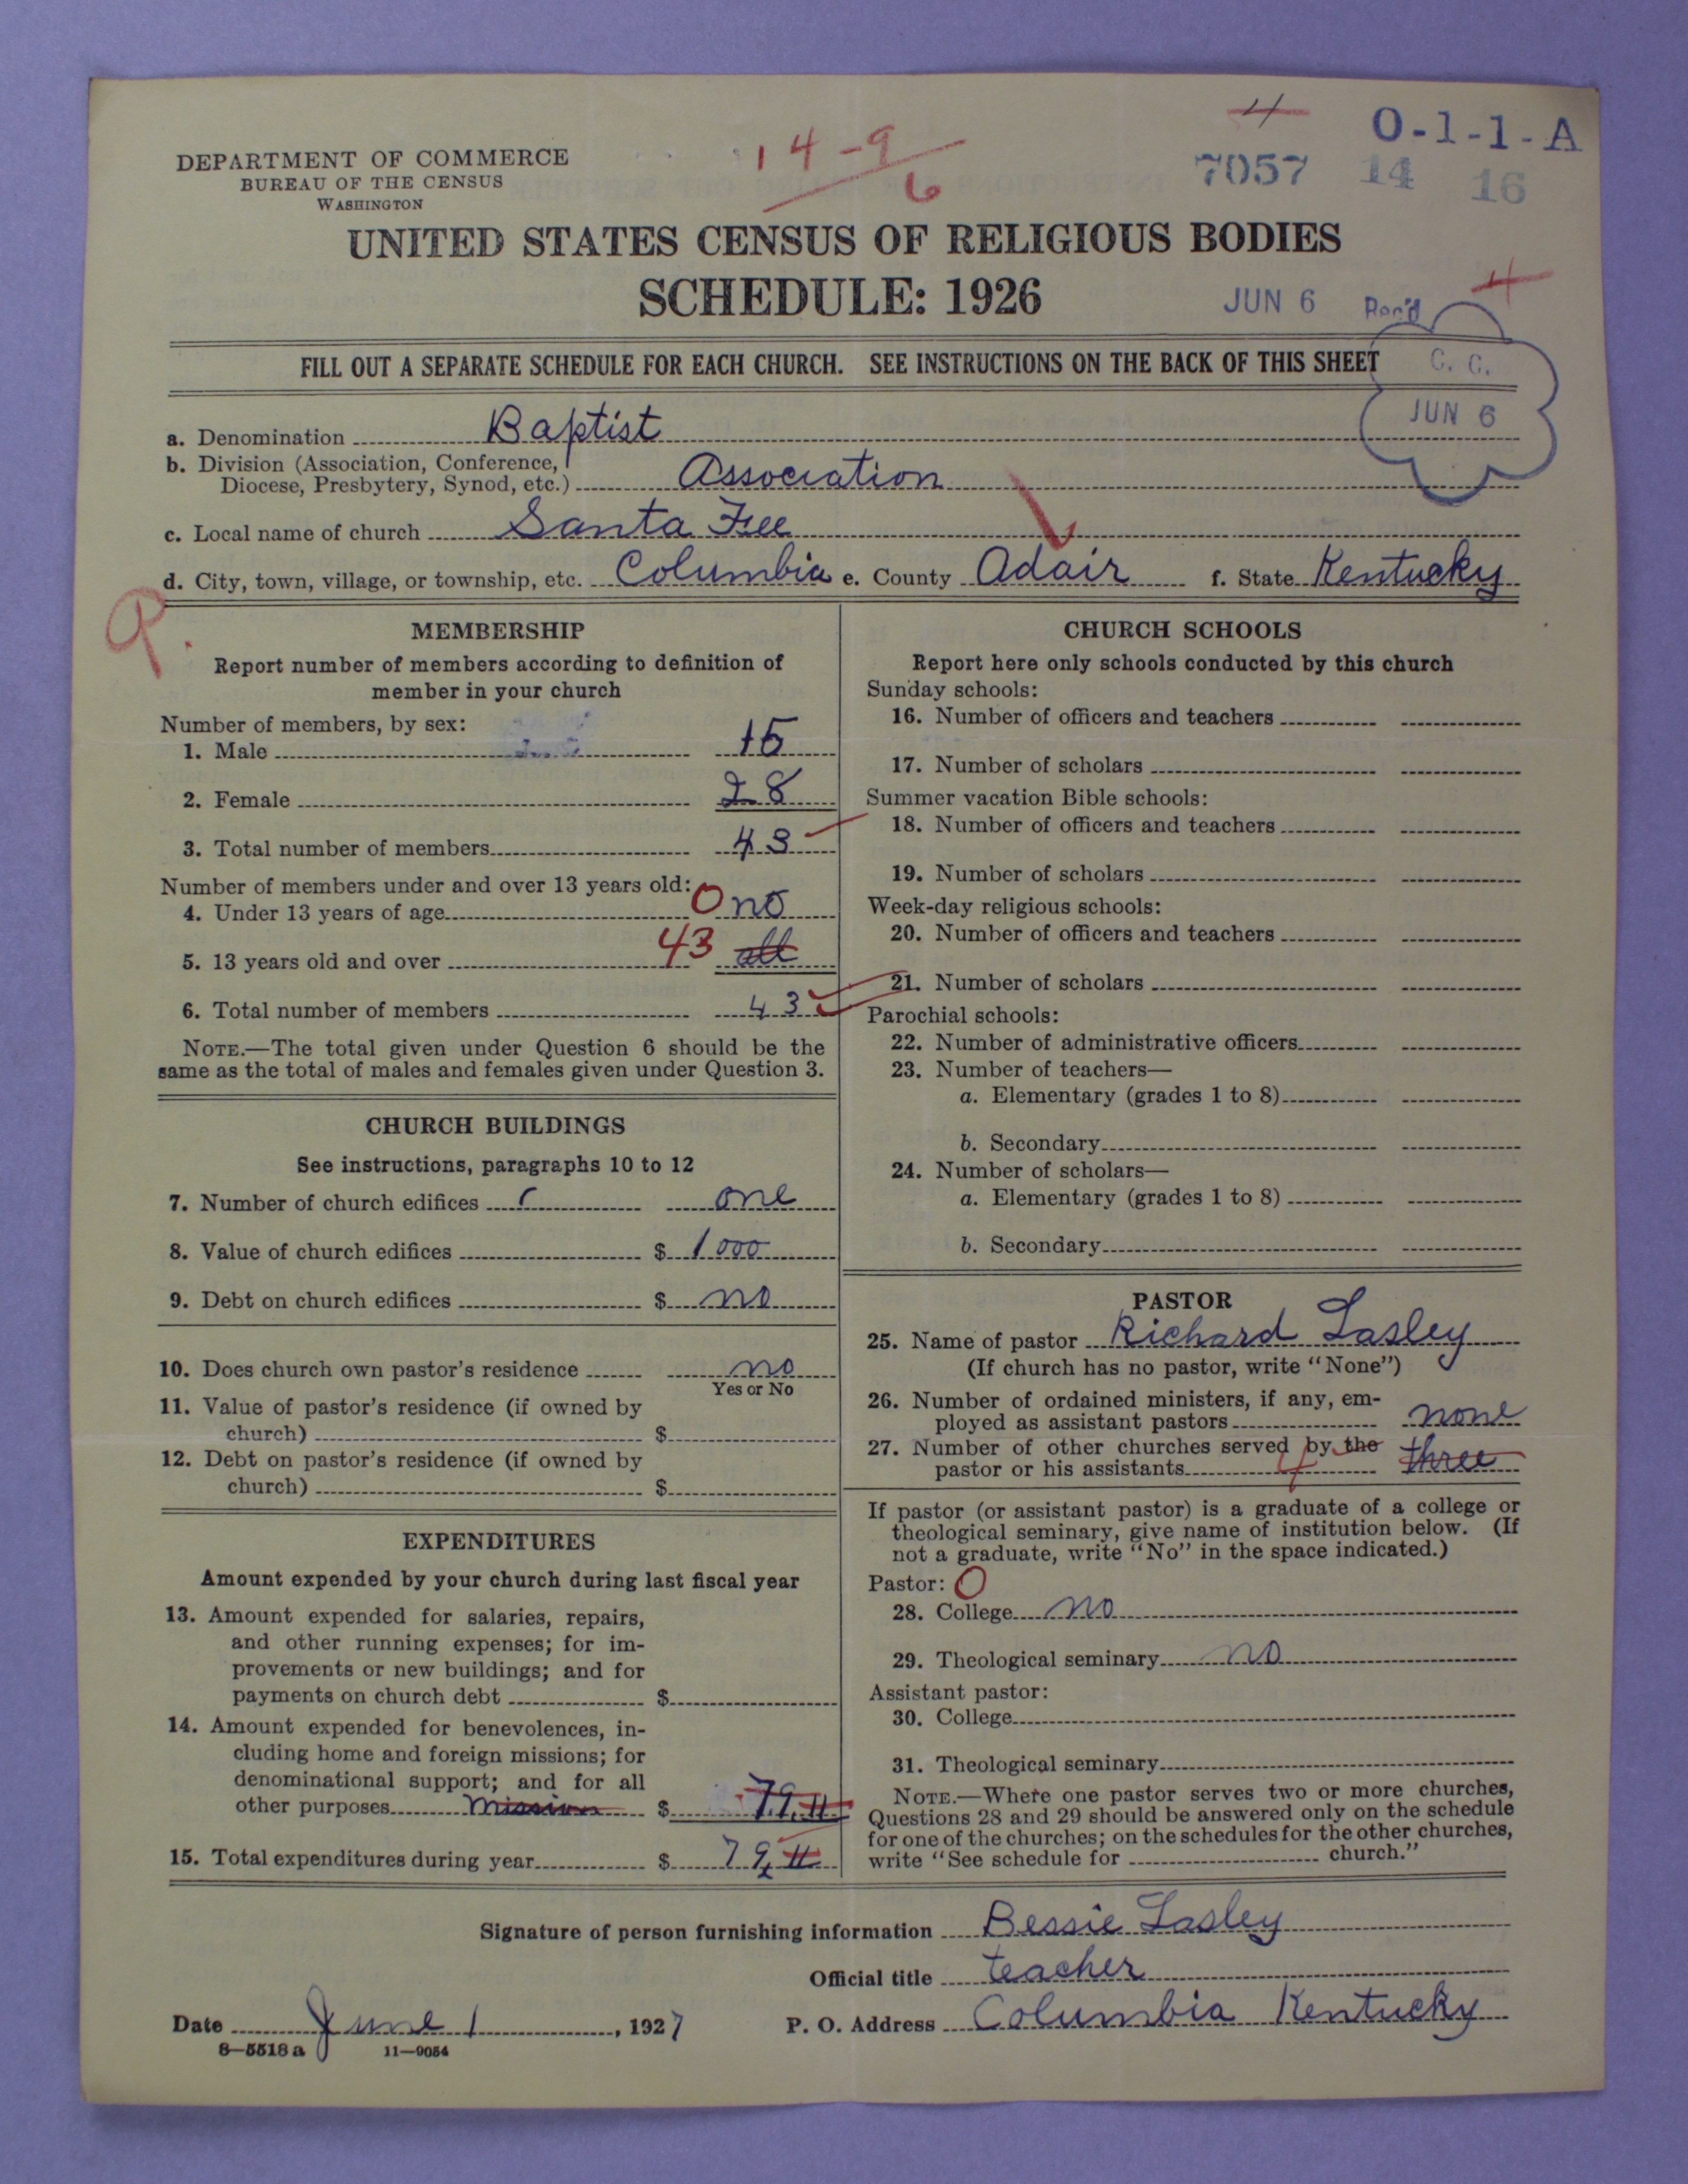 4 O-1-1-A
14-9
6
7057 14 16
DEPARTMENT OF COMMERCE
BUREAU OF THE CENSUS
WASHINGTON
UNITED STATES CENSUS OF RELIGIOUS BODIES
SCHEDULE: 1926
JUN 6 Rec'd
4
FILL OUT A SEPARATE SCHEDULE FOR EACH CHURCH. SEE INSTRUCTIONS ON THE BACK OF THIS SHEET
C. C.
JUN 6
a. Denomination Baptist
b. Division (Association, Conference,
Diocese, Presbytery, Synod, etc.) Association
c. Local name of church Santa Fee
d. City, town, village, or township, etc. Columbia e. County Adair f. State Kentucky
MEMBERSHIP
Report number of members according to definition of
member in your church
Number of members, by sex:
1. Male 15
2. Female 28
3. Total number of members 43
Number of members under and over 13 years old:
4. Under 13 years of age 0 no
5. 13 years old and over 43 all
6. Total number of members 43
NOTE.—The total given under Question 6 should be the
same as the total of males and females given under Question 3.
CHURCH BUILDINGS
See instructions, paragraphs 10 to 12
7. Number of church edifices one
8. Value of church edifices $ 1000
9. Debt on church edifices $ no
10. Does church own pastor's residence no
Yes or No
11. Value of pastor's residence (if owned by
church) $
12. Debt on pastor's residence (if owned by
church) $
EXPENDITURES
Amount expended by your church during last fiscal year
13. Amount expended for salaries, repairs,
and other running expenses; for im-
provements or new buildings; and for
payments on church debt $
14. Amount expended for benevolences, in-
cluding home and foreign missions; for
denominational support; and for all
other purposes Mission $ 79.11
15. Total expenditures during year $ 79.11
CHURCH SCHOOLS
Report here only schools conducted by this church
Sunday schools:
16. Number of officers and teachers
17. Number of scholars
Summer vacation Bible schools:
18. Number of officers and teachers
19. Number of scholars
Week-day religious schools:
20. Number of officers and teachers
21. Number of scholars
Parochial schools:
22. Number of administrative officers
23. Number of teachers—
a. Elementary (grades 1 to 8)
b. Secondary
24. Number of scholars—
a. Elementary (grades 1 to 8)
b. Secondary
PASTOR
25. Name of pastor Richard Lasley
(If church has no pastor, write "None")
26. Number of ordained ministers, if any, em-
ployed as assistant pastors none
27. Number of other churches served by the
pastor or his assistants 4 three
If pastor (or assistant pastor) is a graduate of a college or
theological seminary, give name of institution below. (If
not a graduate, write "No" in the space indicated.)
Pastor: O
28. College no
29. Theological seminary no
Assistant pastor:
30. College
31. Theological seminary
NOTE.—Where one pastor serves two or more churches,
Questions 28 and 29 should be answered only on the schedule
for one of the churches; on the schedules for the other churches,
write "See schedule for church."
Signature of person furnishing information Bessie Lasley
Official title teacher
Date June 1, 1927 P. O. Address Columbia Kentucky
8-5518 a 11-9054